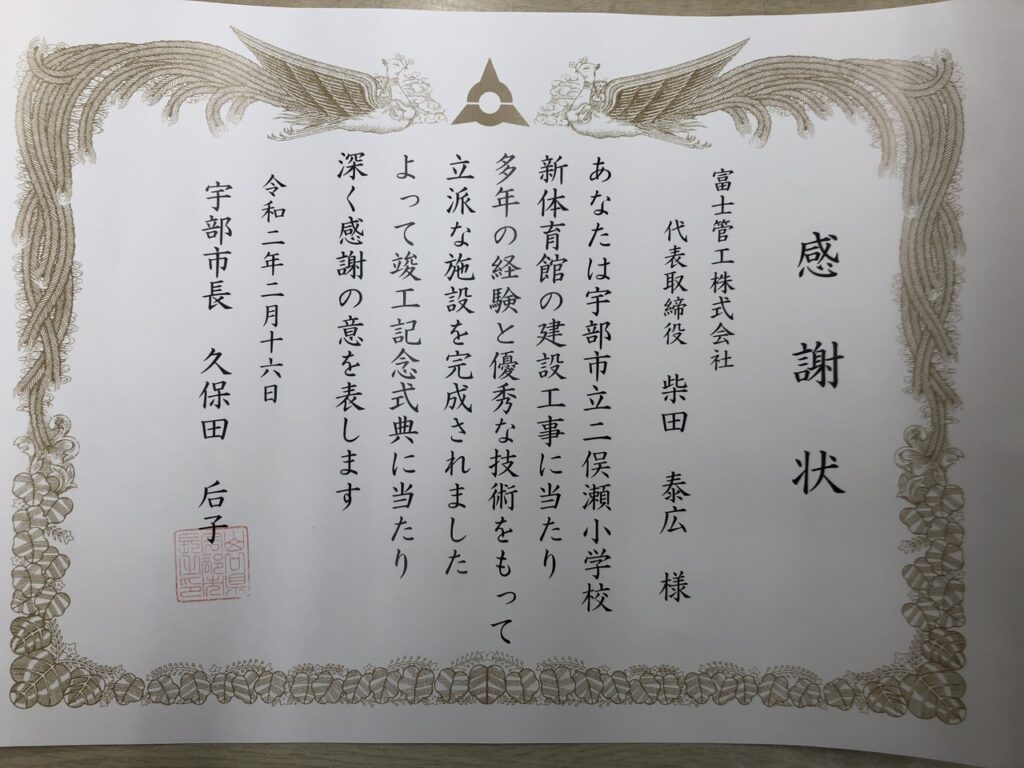 感謝状
富士管工株式会社
代表取締役 柴田 泰広 様
あなたは宇部市立二俣瀬小学校
新体育館の建設工事に当たり
多年の経験と優秀な技術をもって
立派な施設を完成されました
よって竣工記念式典に当たり
深く感謝の意を表します
令和二年二月十六日
宇部市長 久保田 后子